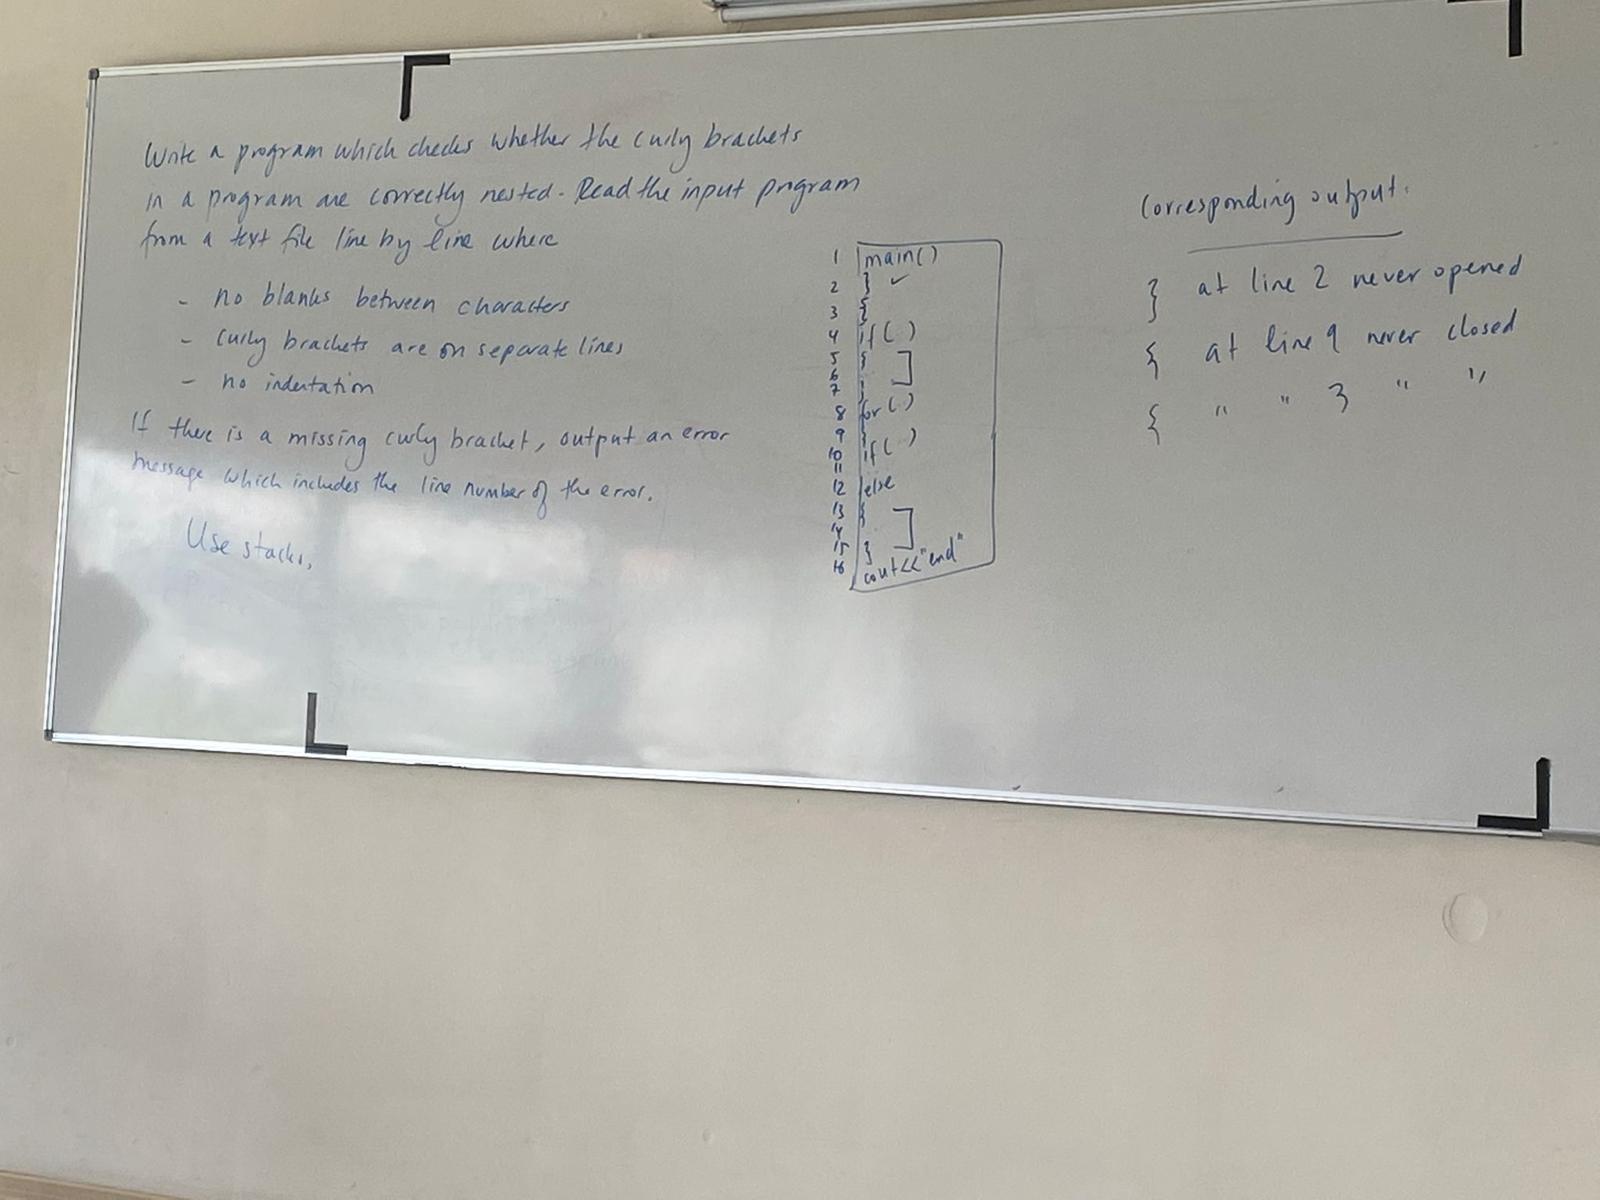 Write a program which checks whether the curly brackets
in a program are correctly nested. Read the input program
from a text file line by line where
- no blanks between characters
- curly brackets are on separate lines
- no indentation
If there is a missing curly bracket, output an error
message which includes the line number of the error.
Use stacks.
1 main()
2 }
3 {
4 if( )
5 {
6
7 }
8 for( )
9 {
10 if( )
11
12 else
13 {
14
15 }
16 cout<<"end"
Corresponding output:
} at line 2 never opened
{ at line 9 never closed
{ " " 3 " "